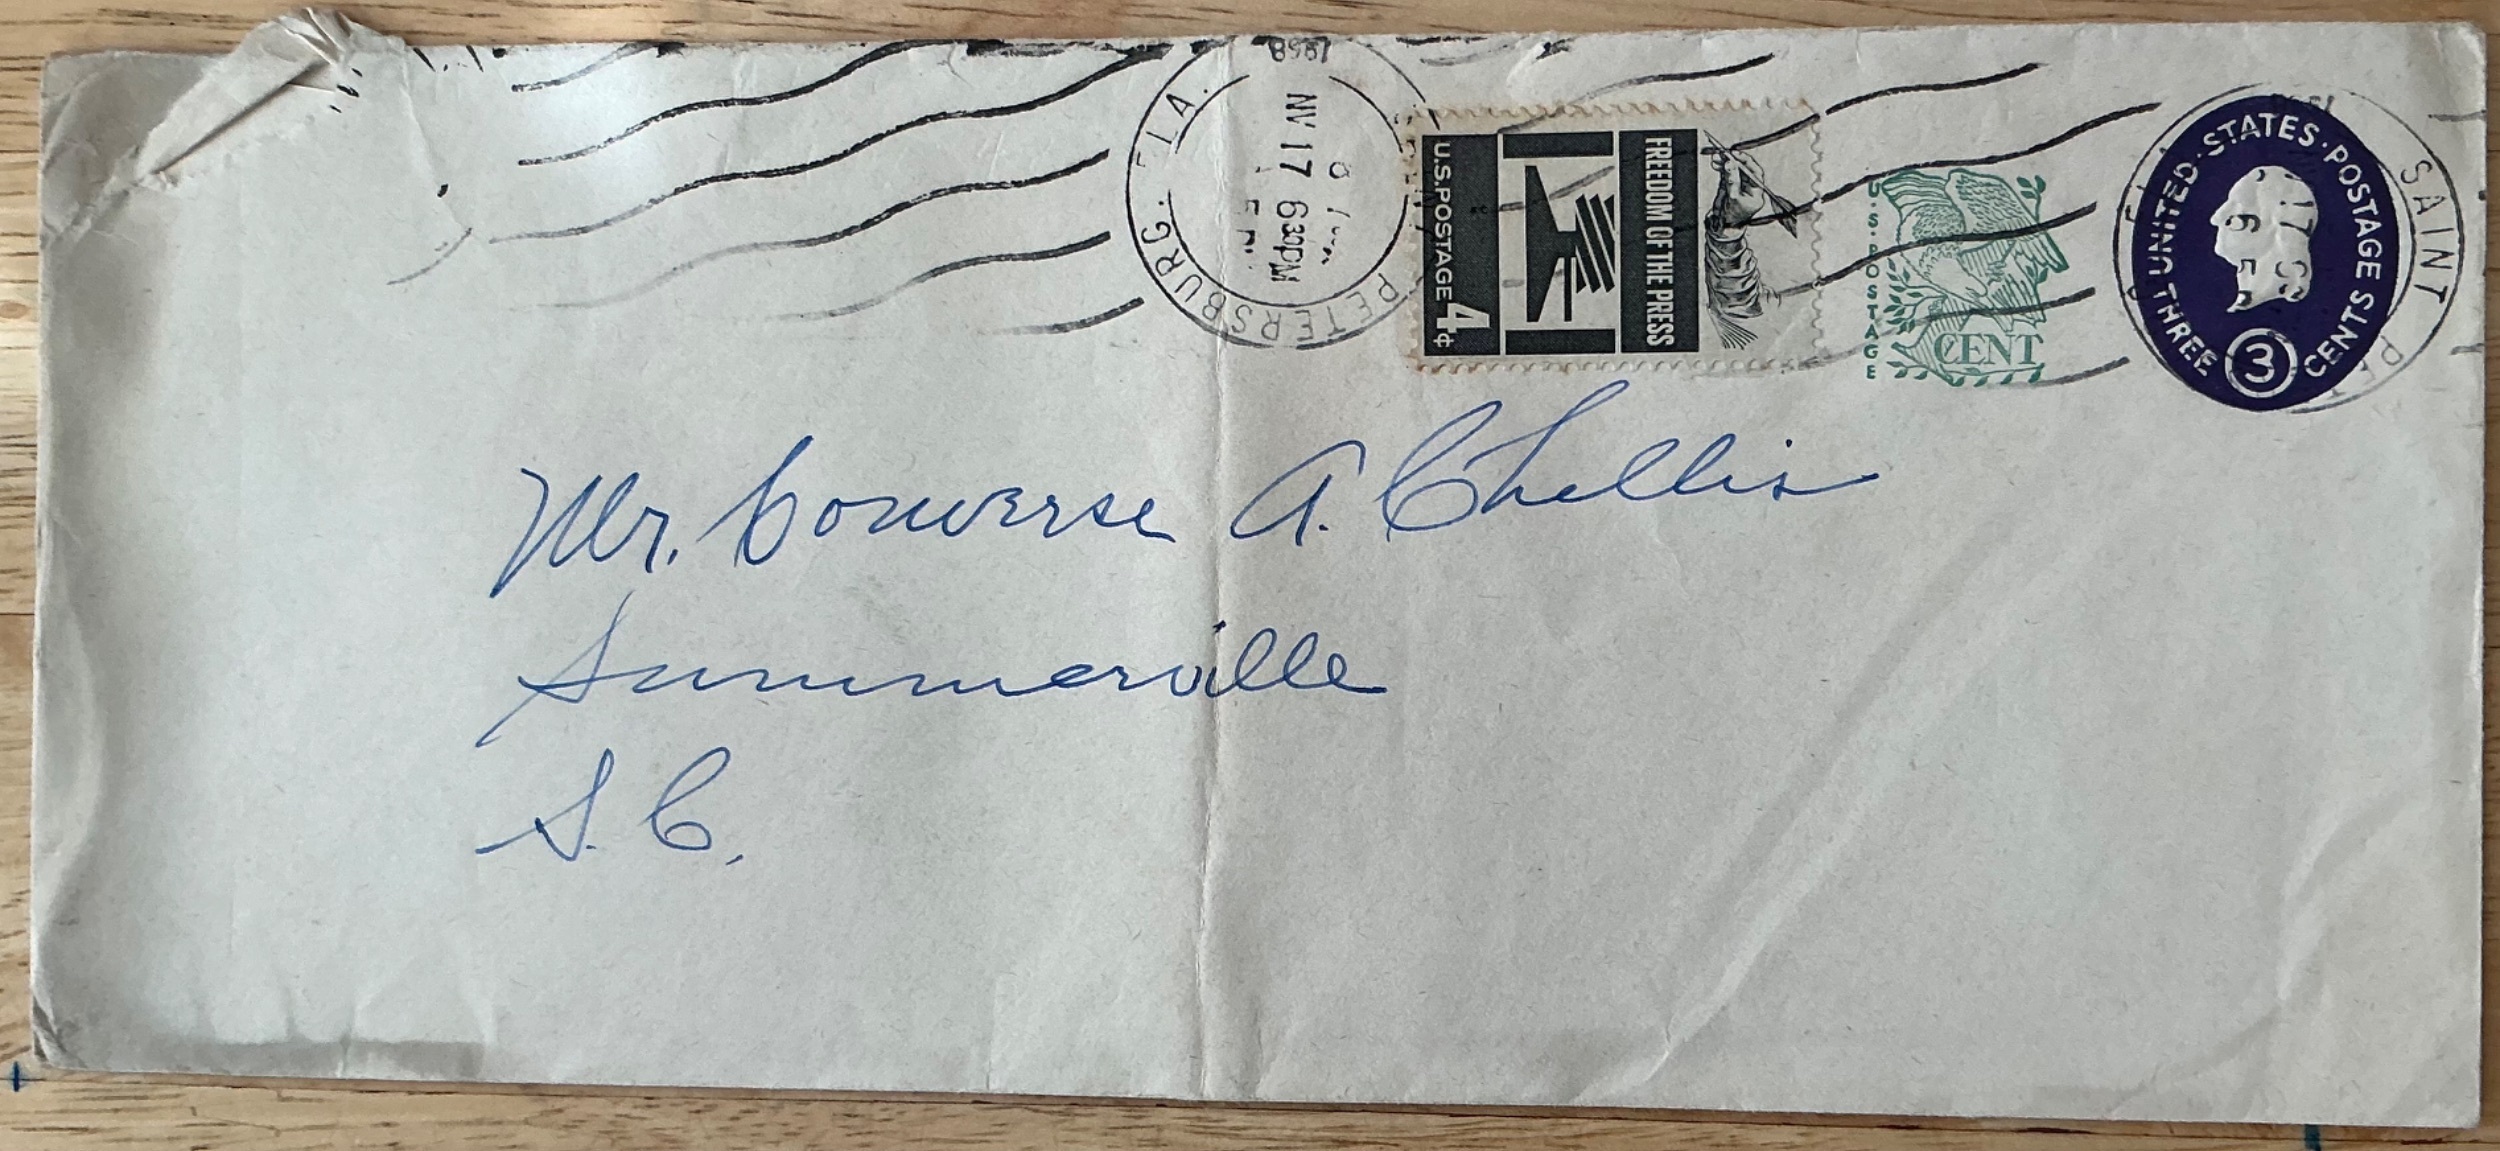 1958
NV 17 630PM
PETERSBURG. FLA.
FREEDOM OF THE PRESS
U.S. POSTAGE 4¢
U.S. POSTAGE
CENT
UNITED · STATES · POSTAGE
THREE 3 CENTS
SAINT
Mr. Converse A. Chellis
Summerville
S. C.